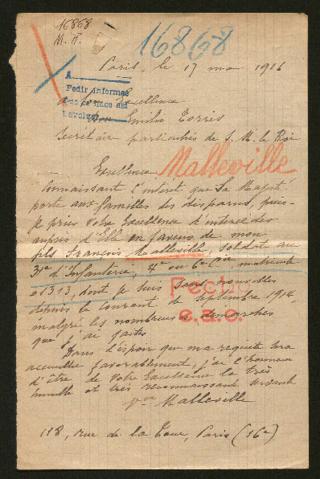 16868
M. F.
16868
Paris, le 17 mai 1916
A
Pedir informes
A Son Excellence
Don Emilio Torres
Secrétaire particulier de S. M. le Roi
Excellence
Malleville
Connaissant l'intérêt que Sa Majesté
porte aux familles des disparus, puis-
je prier Votre Excellence d'intercéder
auprès d'Elle en faveur de mon
fils François Malleville, soldat au
d'Infanterie, 4e ou 6e Cie, matricule
01313, dont je suis sans nouvelles
depuis le courant de Septembre 1914
malgré les nombreuses démarches
que j'ai faites
Dans l'espoir que ma requête sera
accueillie favorablement, j'ai l'honneur
d'être de Votre Excellence la très
humble et très reconnaissante
Malleville
118, rue de la Tour, Paris (16e)